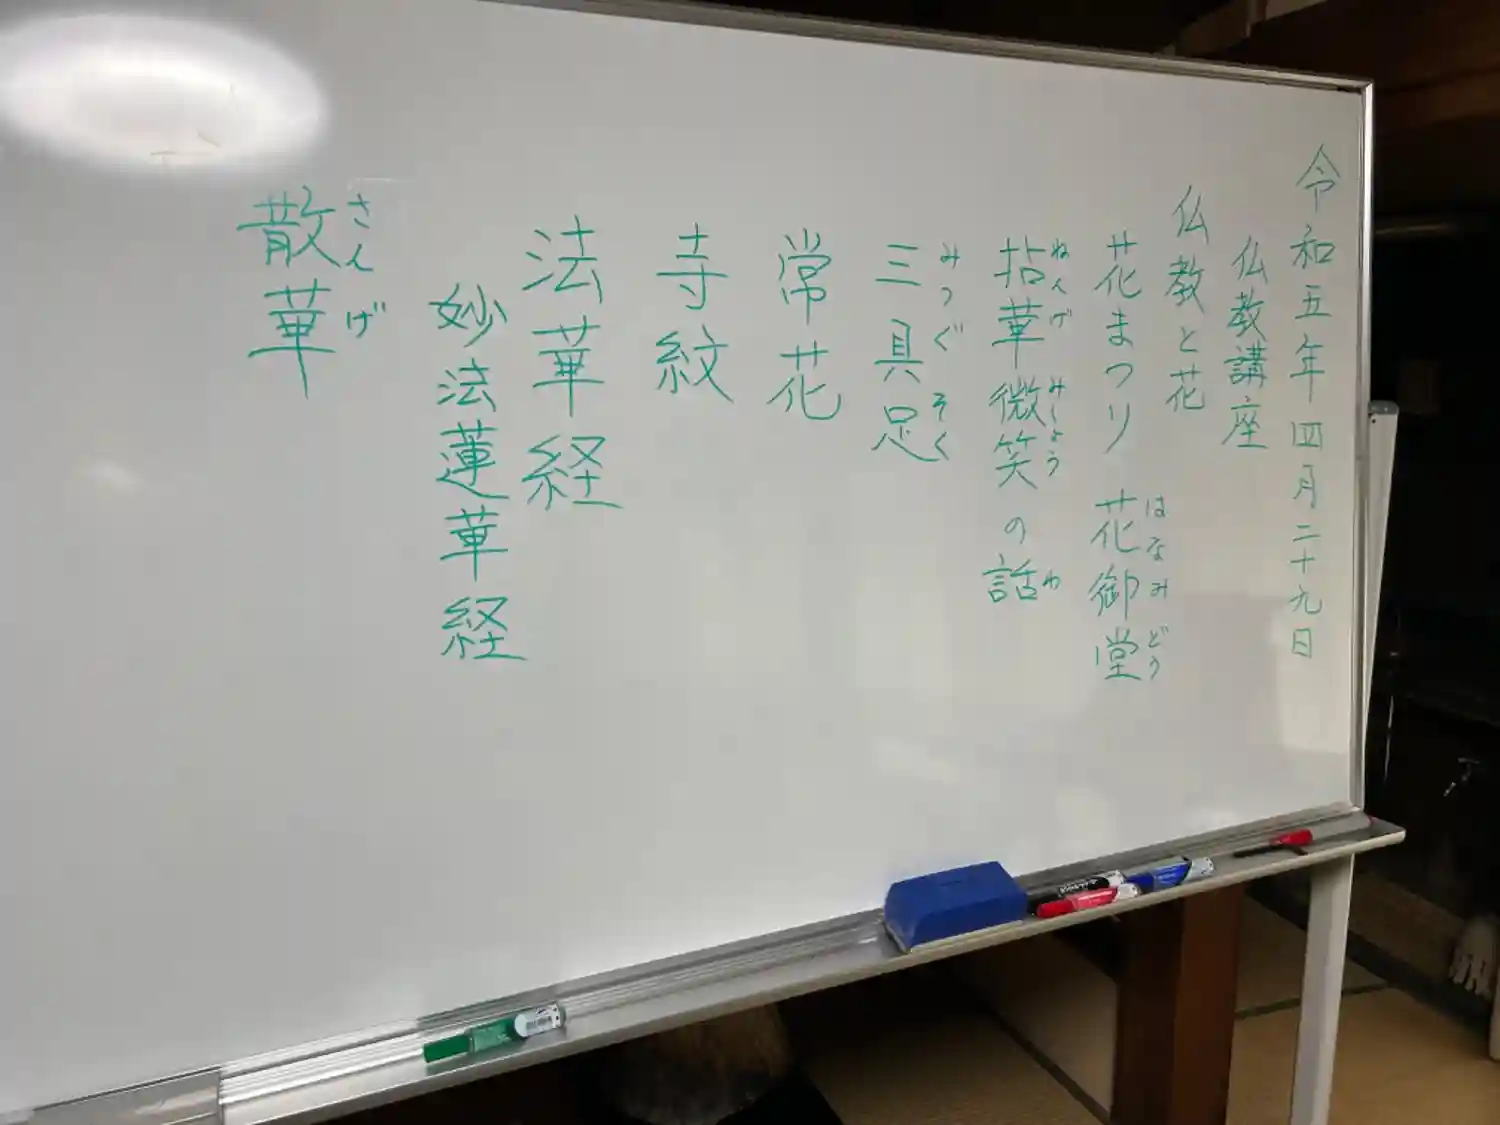 令和五年四月二十九日
仏教講座
仏教と花
花まつり 花御堂
はなみどう
拈華微笑の話
ねんげ みしょう わ
三具足
みつぐそく
常花
寺紋
法華経
妙法蓮華経
散華
さんげ